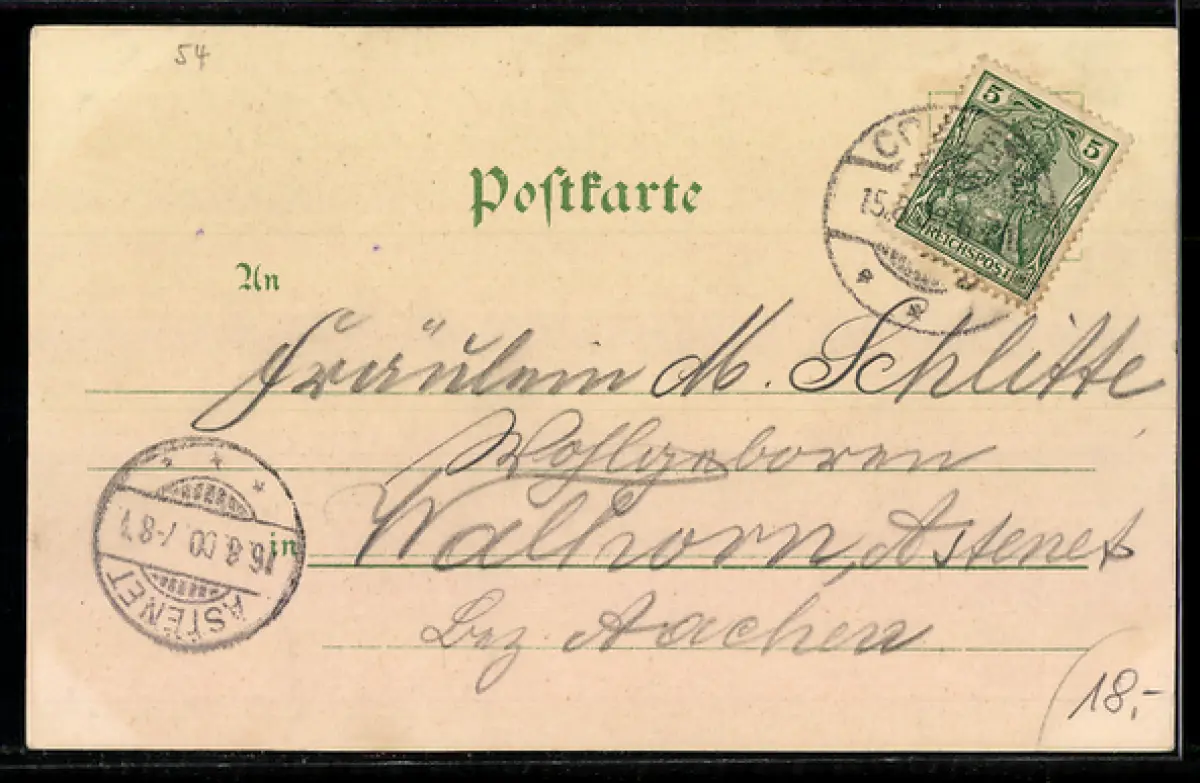 54
5 5
REICHSPOST
15.8
Postkarte
An
Fräulein M. Schlitte
Wohlgeboren
in Walhorn, Astenet
Bez Aachen
16.8.00. 7-8V.
ASTENET
18,-